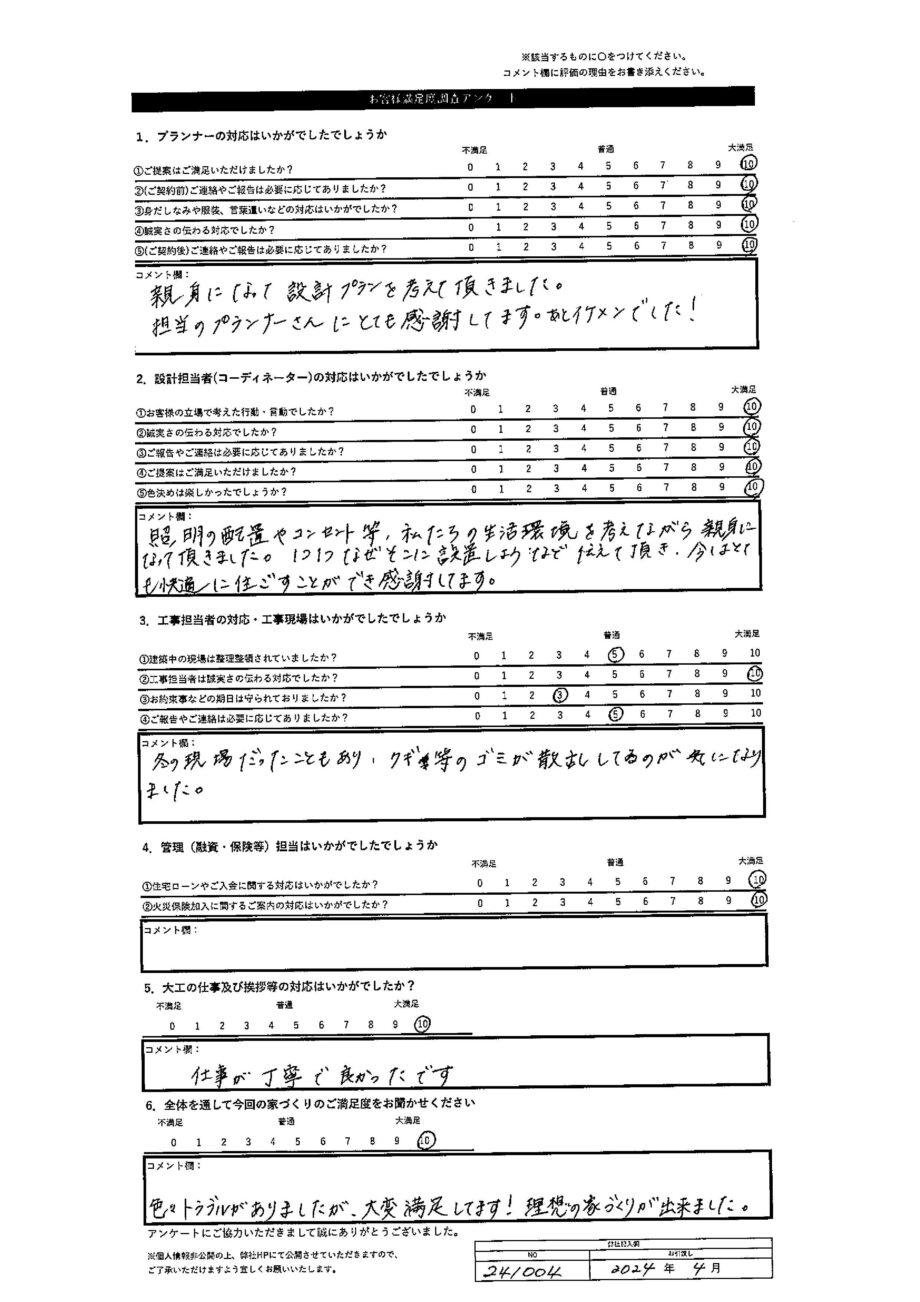 ※該当するものに〇をつけてください。
コメント欄に評価の理由をお書き添えください。
お客様満足度調査アンケート
1．プランナーの対応はいかがでしたでしょうか
不満足 普通 大満足
①ご提案はご満足いただけましたか？ 0 1 2 3 4 5 6 7 8 9 10
②(ご契約前)ご連絡やご報告は必要に応じてありましたか？ 0 1 2 3 4 5 6 7 8 9 10
③身だしなみや服装、言葉遣いなどの対応はいかがでしたか？ 0 1 2 3 4 5 6 7 8 9 10
④誠実さの伝わる対応でしたか？ 0 1 2 3 4 5 6 7 8 9 10
⑤(ご契約後)ご連絡やご報告は必要に応じてありましたか？ 0 1 2 3 4 5 6 7 8 9 10
コメント欄：
親身になって設計プランを考えて頂きました。
担当のプランナーさんにとても感謝してます。あとイケメンでした！
2．設計担当者(コーディネーター)の対応はいかがでしたでしょうか
不満足 普通 大満足
①お客様の立場で考えた行動・言動でしたか？ 0 1 2 3 4 5 6 7 8 9 10
②誠実さの伝わる対応でしたか？ 0 1 2 3 4 5 6 7 8 9 10
③ご報告やご連絡は必要に応じてありましたか？ 0 1 2 3 4 5 6 7 8 9 10
④ご提案はご満足いただけましたか？ 0 1 2 3 4 5 6 7 8 9 10
⑤色決めは楽しかったでしょうか？ 0 1 2 3 4 5 6 7 8 9 10
コメント欄：
照明の配置やコンセント等、私たちの生活環境を考えながら親身に
なって頂きました。1つ1つなぜそこに設置しようなど伝えて頂き、今はとて
も快適に住ごすことができ感謝してます。
3．工事担当者の対応・工事現場はいかがでしたでしょうか
不満足 普通 大満足
①建築中の現場は整理整頓されていましたか？ 0 1 2 3 4 5 6 7 8 9 10
②工事担当者は誠実さの伝わる対応でしたか？ 0 1 2 3 4 5 6 7 8 9 10
③お約束事などの期日は守られておりましたか？ 0 1 2 3 4 5 6 7 8 9 10
④ご報告やご連絡は必要に応じてありましたか？ 0 1 2 3 4 5 6 7 8 9 10
コメント欄：
冬の現場だったこともあり、クギ等のゴミが散乱してるのが気になり
ました。
4．管理（融資・保険等）担当はいかがでしたでしょうか
不満足 普通 大満足
①住宅ローンやご入金に関する対応はいかがでしたか？ 0 1 2 3 4 5 6 7 8 9 10
②火災保険加入に関するご案内の対応はいかがでしたか？ 0 1 2 3 4 5 6 7 8 9 10
コメント欄：
5．大工の仕事及び挨拶等の対応はいかがでしたか？
不満足 普通 大満足
0 1 2 3 4 5 6 7 8 9 10
コメント欄：
仕事が丁寧で良かったです
6．全体を通して今回の家づくりのご満足度をお聞かせください
不満足 普通 大満足
0 1 2 3 4 5 6 7 8 9 10
コメント欄：
色々トラブルがありましたが、大変満足してます！理想の家づくりが出来ました。
アンケートにご協力いただきまして誠にありがとうございました。
※個人情報非公開の上、弊社HPにて公開させていただきますので、
ご了承いただけますよう宜しくお願いいたします。
弊社記入欄
NO お引渡し
241004 2024 年 4 月